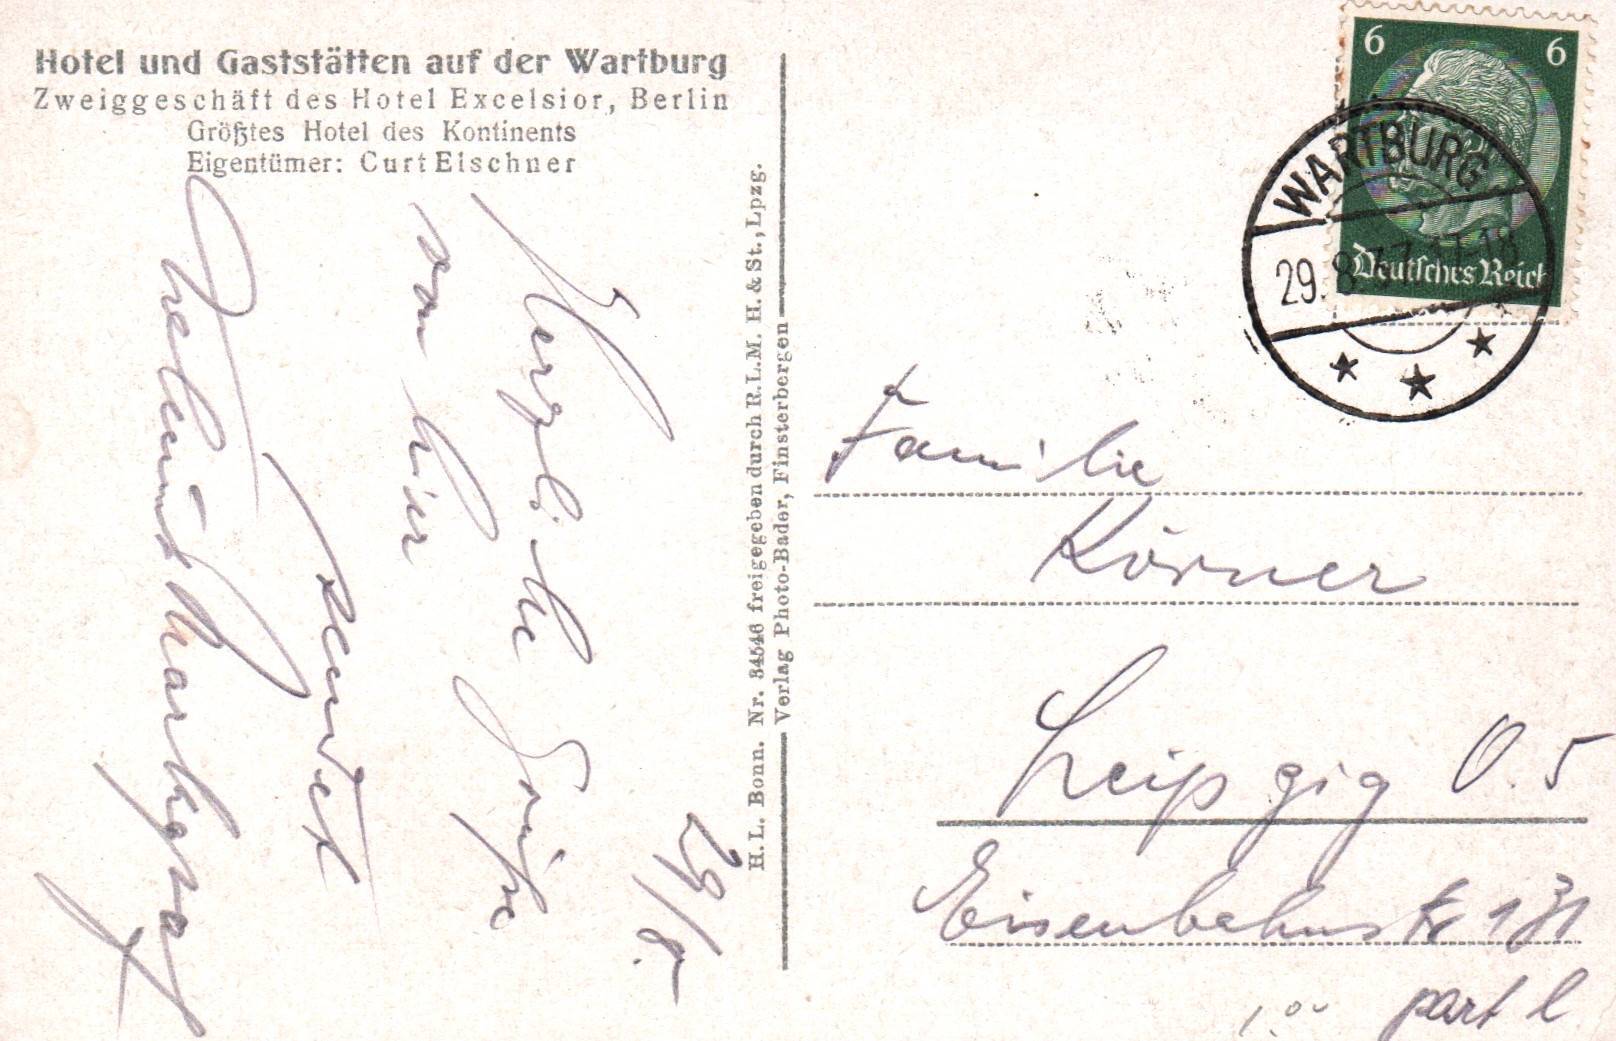 Hotel und Gaststätten auf der Wartburg
Zweiggeschäft des Hotel Excelsior, Berlin
Größtes Hotel des Kontinents
Eigentümer: Curt Elschner
29/8.
Herzliche Grüße
von hier
sendet
H. L. Bonn. Nr. 34546 freigegeben durch R. L. M. H. & St., Lpzg.
Verlag Photo-Bader, Finsterbergen
6 6
Deutsches Reich
WARTBURG
29.8.37.17-18
Familie
Körner
Leipzig O. 5
Eisenbahnstr 131
part l
1.00